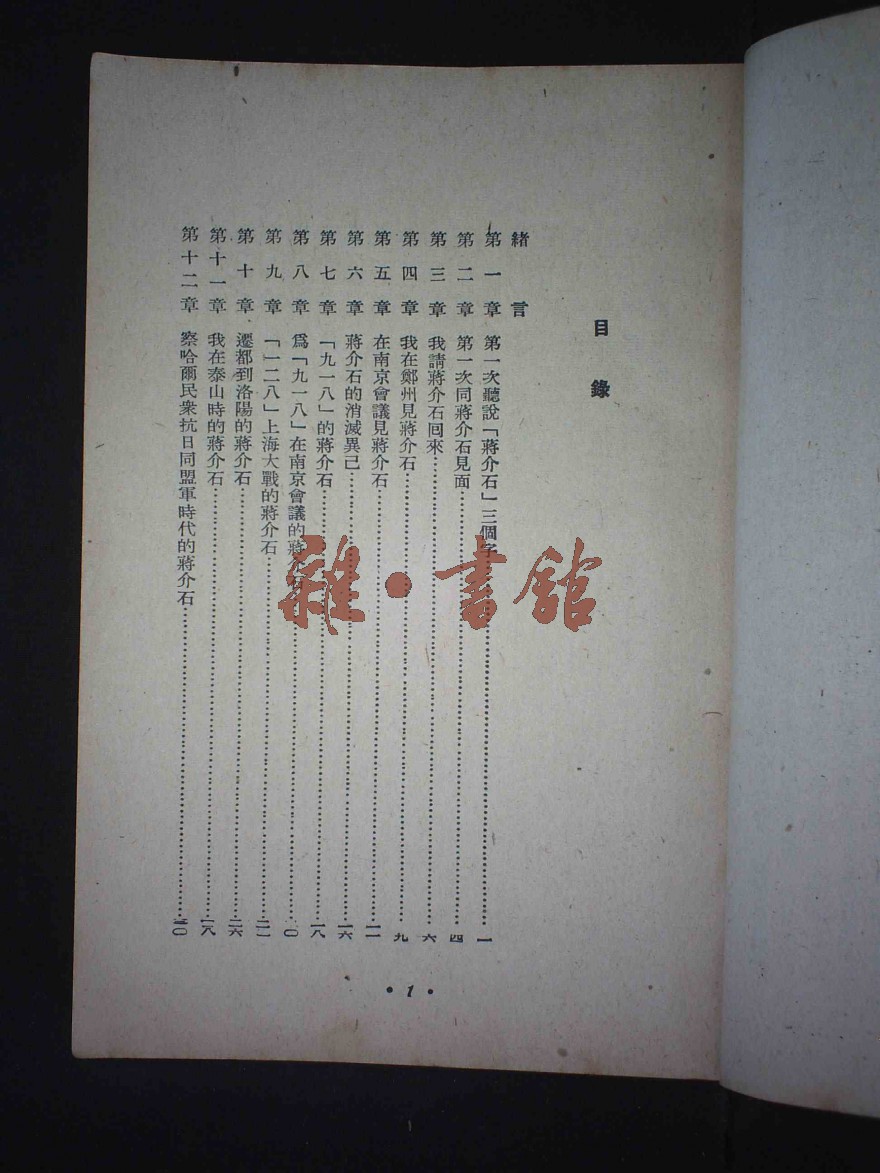 目錄
緒言
第一章 第一次聽說「蔣介石」三個字…………一
第二章 第一次同蔣介石見面…………四
第三章 我請蔣介石囘來…………六
第四章 我在鄭州見蔣介石…………九
第五章 在南京會議見蔣介石…………一一
第六章 蔣介石的消滅異己…………一六
第七章 「九一八」的蔣介石…………一八
第八章 爲「九一八」在南京會議的蔣介石…………
第九章 「一二八」上海大戰的蔣介石…………
第十章 遷都到洛陽的蔣介石…………二六
第十一章 我在泰山時的蔣介石…………
第十二章 察哈爾民衆抗日同盟軍時代的蔣介石…………三〇
•1•
雜•書館